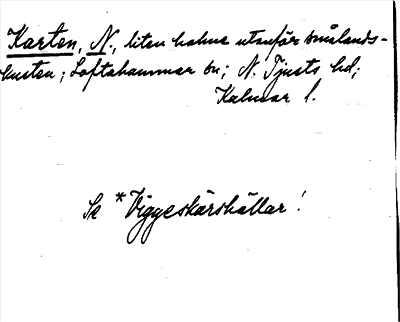 Karten, N., liten holme utanför smålands-
kusten; Loftahammar sn; N. Tjusts hd;
Kalmar l.
Se *Viggeskärshällar!